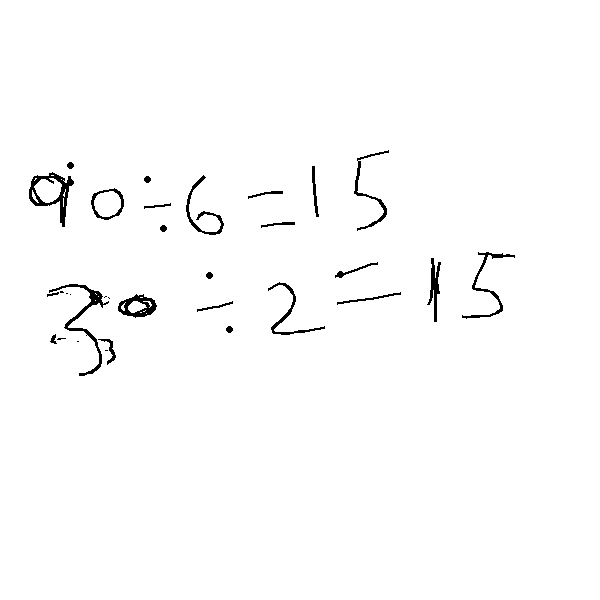 90÷6=15
30÷2=15